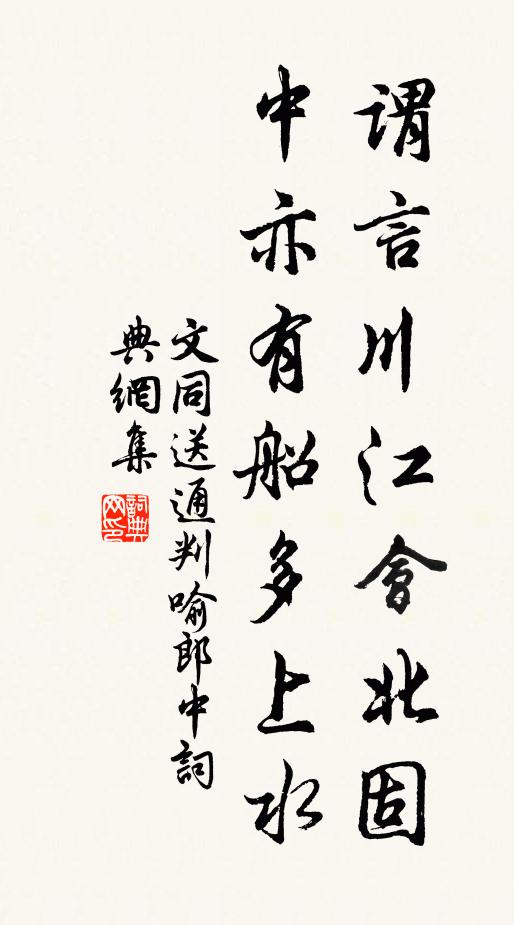 謂言川江會北固
中亦有船多上水
文同送通判喻郎中詞
典網集
詞典
网印